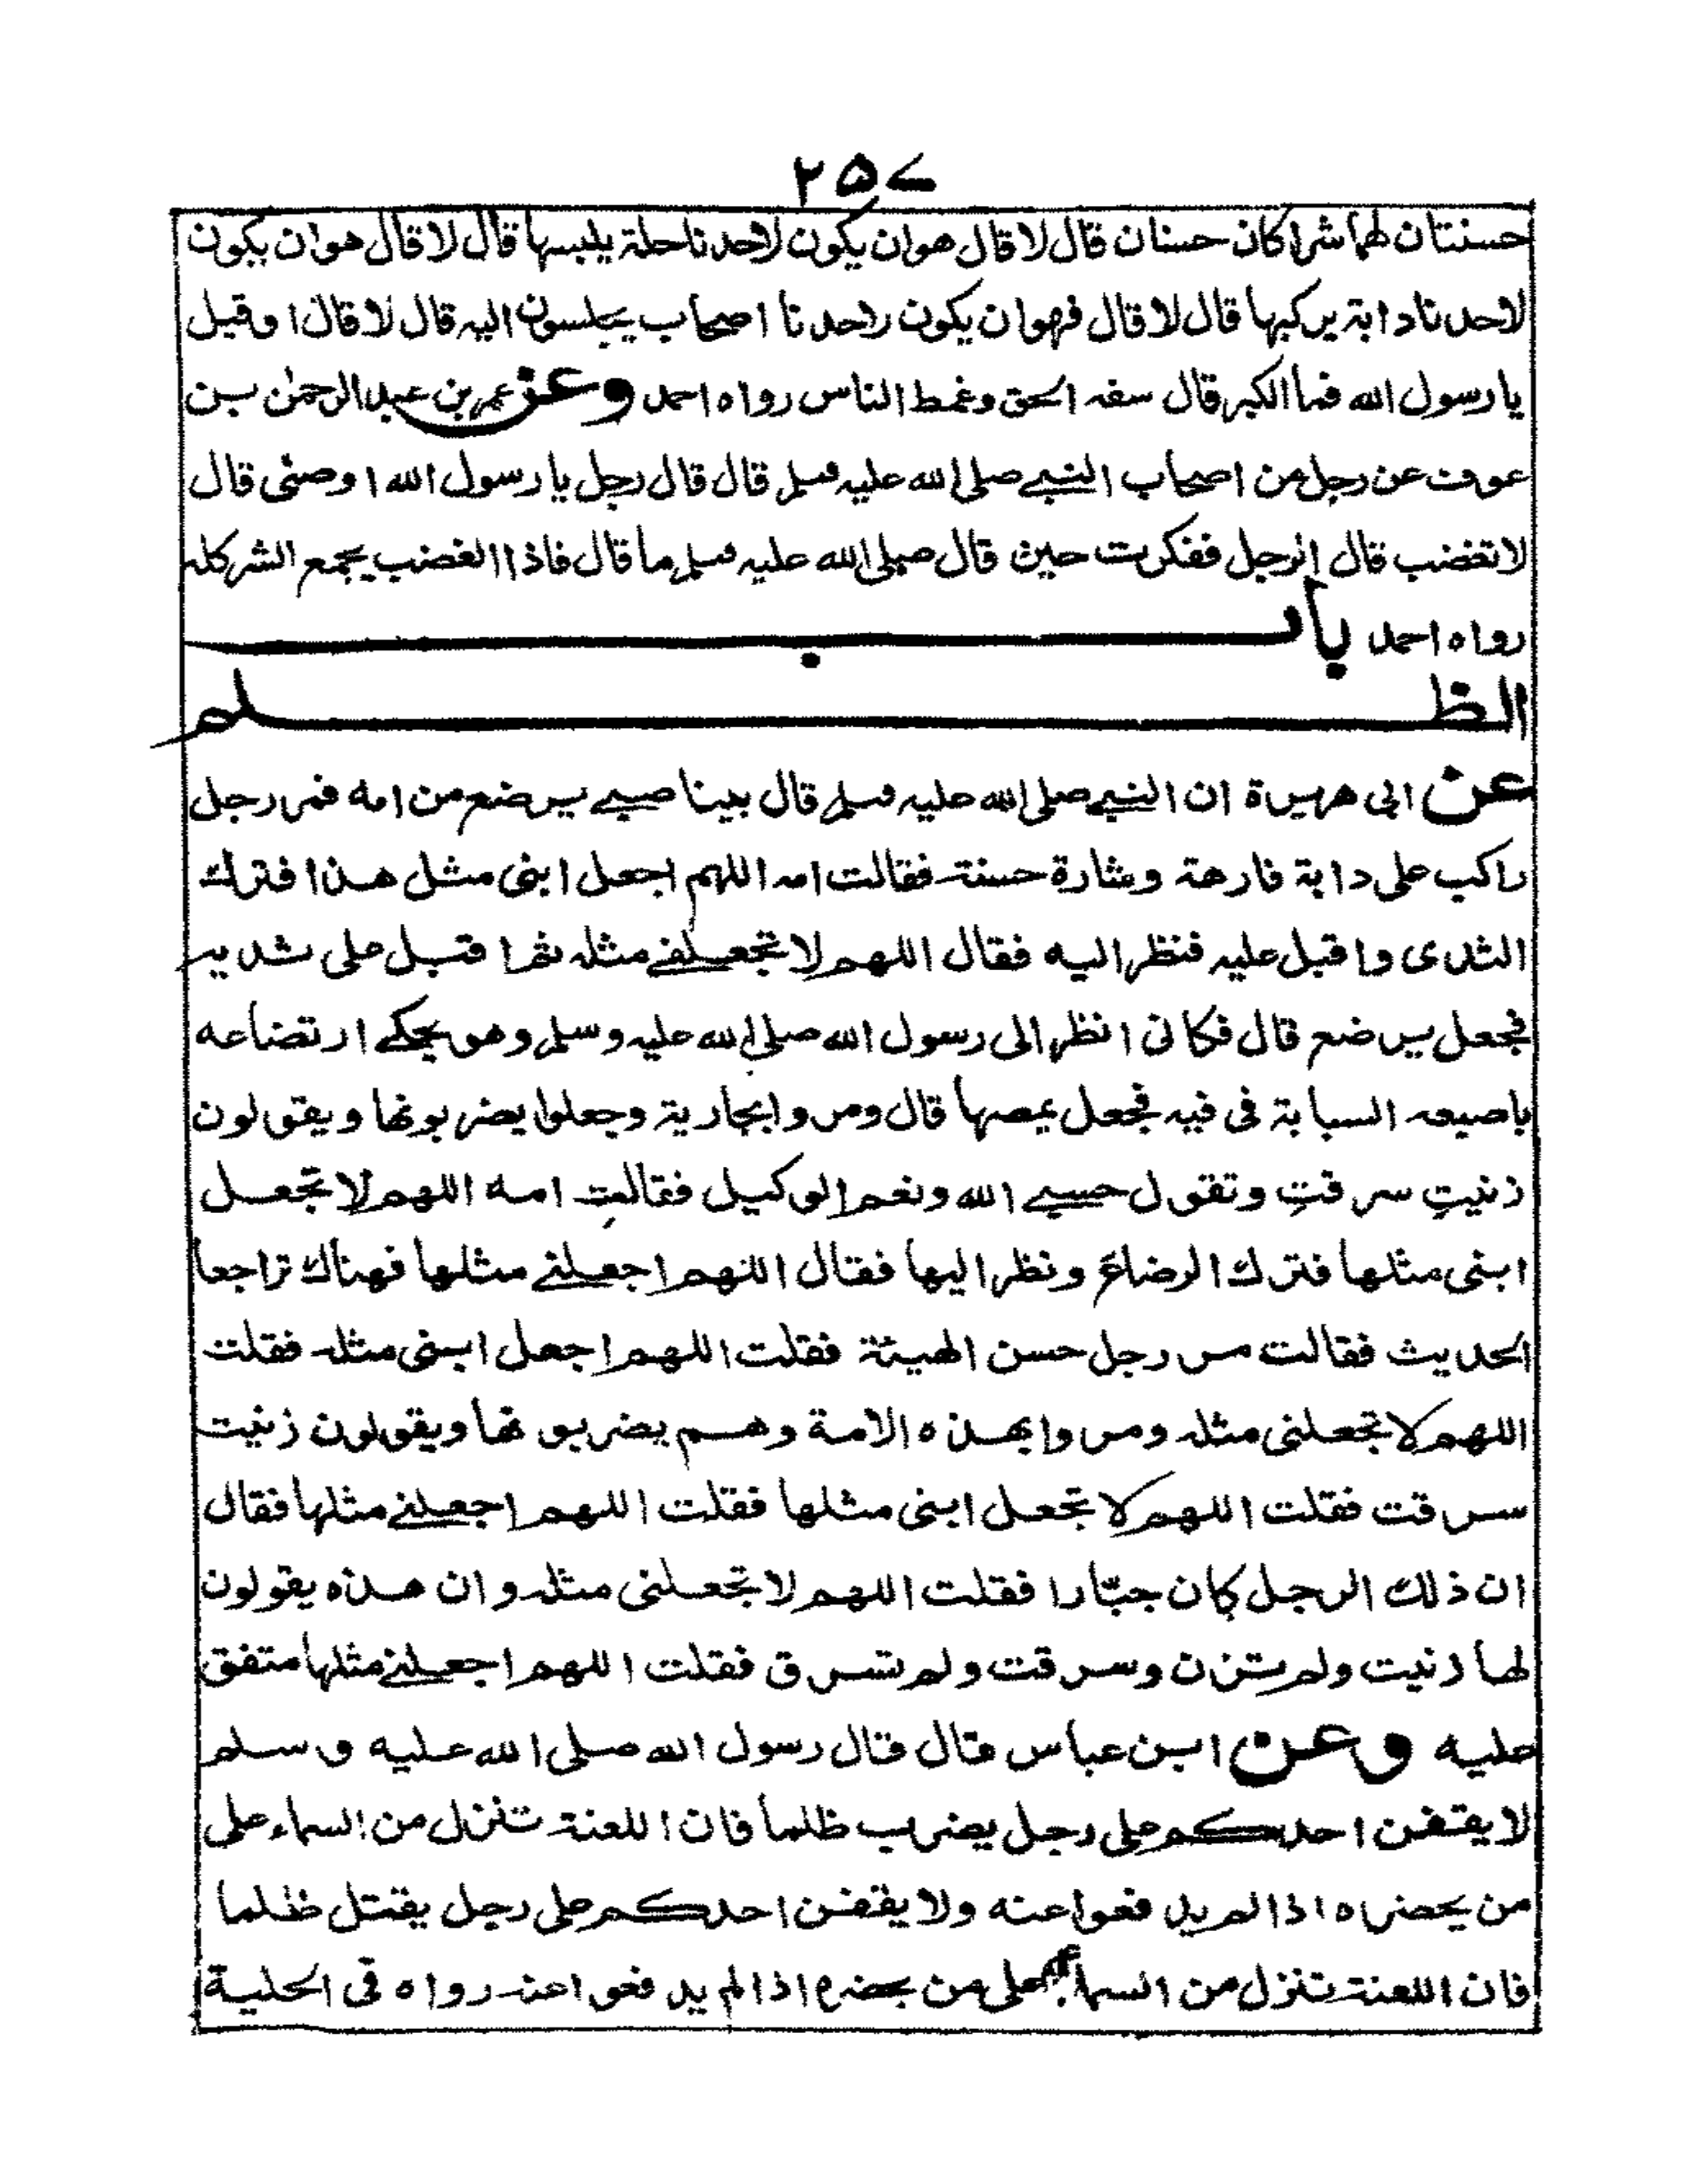 ٢٥٧
حسنتان لهما شراكان حسنان قال لا قال هو ان يكون لاحدنا حلة يلبسها قال لا قال هو ان يكون
لاحدنا دابة يركبها قال لا قال فهو ان يكون لاحدنا اصحاب يجلسون اليه قال لا قال او قيل
يا رسول الله فما الكبر قال سفه الحق وغمط الناس رواه احمد وعن عمر بن عبد الرحمٰن بن
عوف عن رجل من اصحاب النبي صلى الله عليه وسلم قال قال رجل يا رسول الله اوصنى قال
لا تغضب قال الرجل ففكرت حين قال صلى الله عليه وسلم ما قال فاذا الغضب يجمع الشر كله
رواه احمد باب
الظلم
عن ابى هريرة ان النبي صلى الله عليه وسلم قال بينا صبي يرضع من امه فمر رجل
راكب على دابة فارهة وشارة حسنة فقالت امه اللهم اجعل ابنى مثل هذا فترك
الثدى واقبل عليه فنظر اليه فقال اللهم لا تجعلني مثله ثم اقبل على ثديه
فجعل يرضع قال فكانى انظر الى رسول الله صلى الله عليه وسلم وهو يحكي ارتضاعه
باصبعه السبابة فى فيه فجعل يمصها قال ومروا بجارية وجعلوا يضربونها ويقولون
زنيتِ سرقتِ وتقول حسبي الله ونعم الوكيل فقالت امه اللهم لا تجعل
ابنى مثلها فترك الرضاع ونظر اليها فقال اللهم اجعلني مثلها فهناك تراجعا
الحديث فقالت مر رجل حسن الهيئة فقلت اللهم اجعل ابنى مثله فقلت
اللهم لا تجعلنى مثله ومروا بهذه الامة وهم يضربونها ويقولون زنيت
سرقت فقلت اللهم لا تجعل ابنى مثلها فقلت اللهم اجعلني مثلها فقال
ان ذلك الرجل كان جبّارا فقلت اللهم لا تجعلنى مثله وان هذه يقولون
لها زنيت ولم تزن وسرقت ولم تسرق فقلت اللهم اجعلني مثلها متفق
عليه وعن ابن عباس قال قال رسول الله صلى الله عليه وسلم
لا يقفن احدكم على رجل يضرب ظلما فان اللعنة تنزل من السماء على
من يحضره اذا لم يدفعوا عنه ولا يقفن احدكم على رجل يقتل ظلما
فان اللعنة تنزل من السماء على من يحضره اذا لم يدفعوا عنه رواه فى الحلية